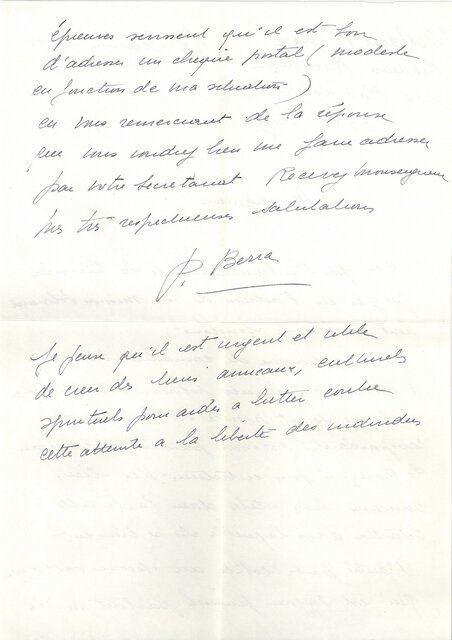 épreuves
qu'il est bon
d'adresser un chèque postal (modeste
en fonction de ma situation)
en vous remerciant de la réponse
que vous voudrez bien me faire adresser
par votre secretariat Recevez Monseigneur
mes très respectueuses salutations
P. Berra
Je pense qu'il est urgent et utile
de créer des liens amicaux, culturels
spirituels pour aider a lutter contre
cette atteinte a la liberté des individus